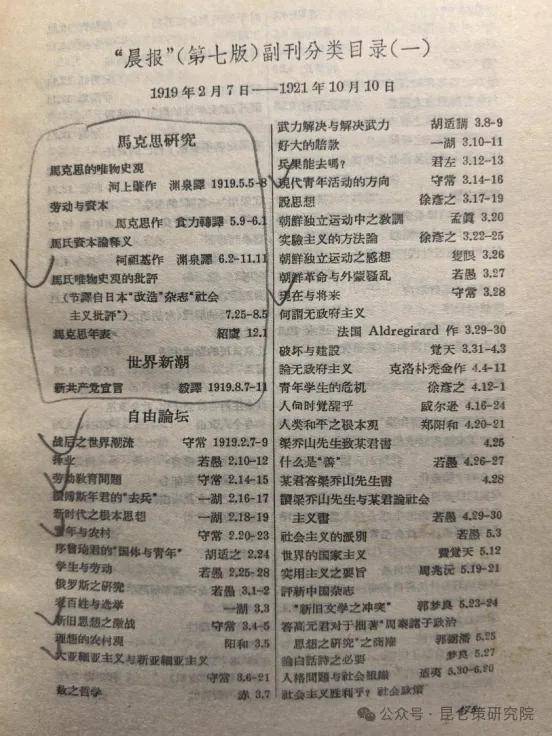 “晨报”(第七版)副刊分类目录(一)
1919年2月7日——1921年10月10日
馬克思研究
馬克思的唯物史观
河上肇作 渊泉譯 1919.5.5-8
劳动与資本
馬克思作 食力轉譯 5.9-6.1
馬氏資本論释义
柯祖基作 渊泉譯 6.2-11.11
馬氏唯物史观的批評
(节譯自日本“改造”杂志“社会
主义批評”) 7.25-8.5
馬克思年表 紹虞 12.1
世界新潮
新共产党宣言 毅譯 1919.8.7-11
自由論坛
战后之世界潮流 守常 1919.2.7-9
择业 若愚 2.10-12
劳动敎育問題 守常 2.14-15
讀傅斯年君的“去兵” 一湖 2.16-17
新时代之根本思想 一湖 2.18-19
青年与农村 守常 2.20-23
序曾琦君的“国体与青年” 胡适之 2.24
学生与劳动 若愚 2.25-28
俄罗斯之研究 若愚 3.1-2
老百姓与选举 一湖 3.3
新旧思想之激战 守常 3.4-5
理想的农村观 阳和 3.5
大亚細亚主义与新亚細亚主义
守常 3.6-21
数之哲学 赤 3.7
武力解决与解决武力 胡适講 3.8-9
好大的賠款 一湖 3.10-11
兵果能去嗎? 君左 3.12-13
现代青年活动的方向 守常 3.14-16
說思想 徐彦之 3.17-19
朝鮮独立运动中之敎訓 孟眞 3.20
实驗主义的方法論 徐彦之 3.22-25
朝鮮独立运动之感想 隻眼 3.26
朝鮮革命与外蒙骚乱 若愚 3.27
现在与将来 守常 3.28
何謂无政府主义
法国 Aldregirard 作 3.29-30
破坏与建設 觉天 3.31-4.3
論无政府主义 克洛朴禿金作 4.4-11
青年学生的危机 徐彦之 4.12-1
人何时觉醒乎 威尔逊 4.16-24
人类和平之根本观 郑阳和 4.20-21
梁乔山先生致某君書 4.25
什么是“善” 若愚 4.26-27
某君答梁乔山先生書 4.28
讀梁乔山先生与某君論社会
主义書 若愚 4.29-30
社会主义的派别 若愚 5.3
世界的国家主义 費觉天 5.12
实用主义之要旨 周兆沅 5.19-21
評新中国杂志
“新旧文学之冲突” 郭梦良 5.23-24
答高元君对于拙著“周秦諸子政治
思想之研究”之商榷 5.25
論白話詩之必要 梦良 5.27
人格問題与社会組織 适夷 5.30-6.20
社会主义胜利乎? 社会政策
475
公众号·昆仑策研究院